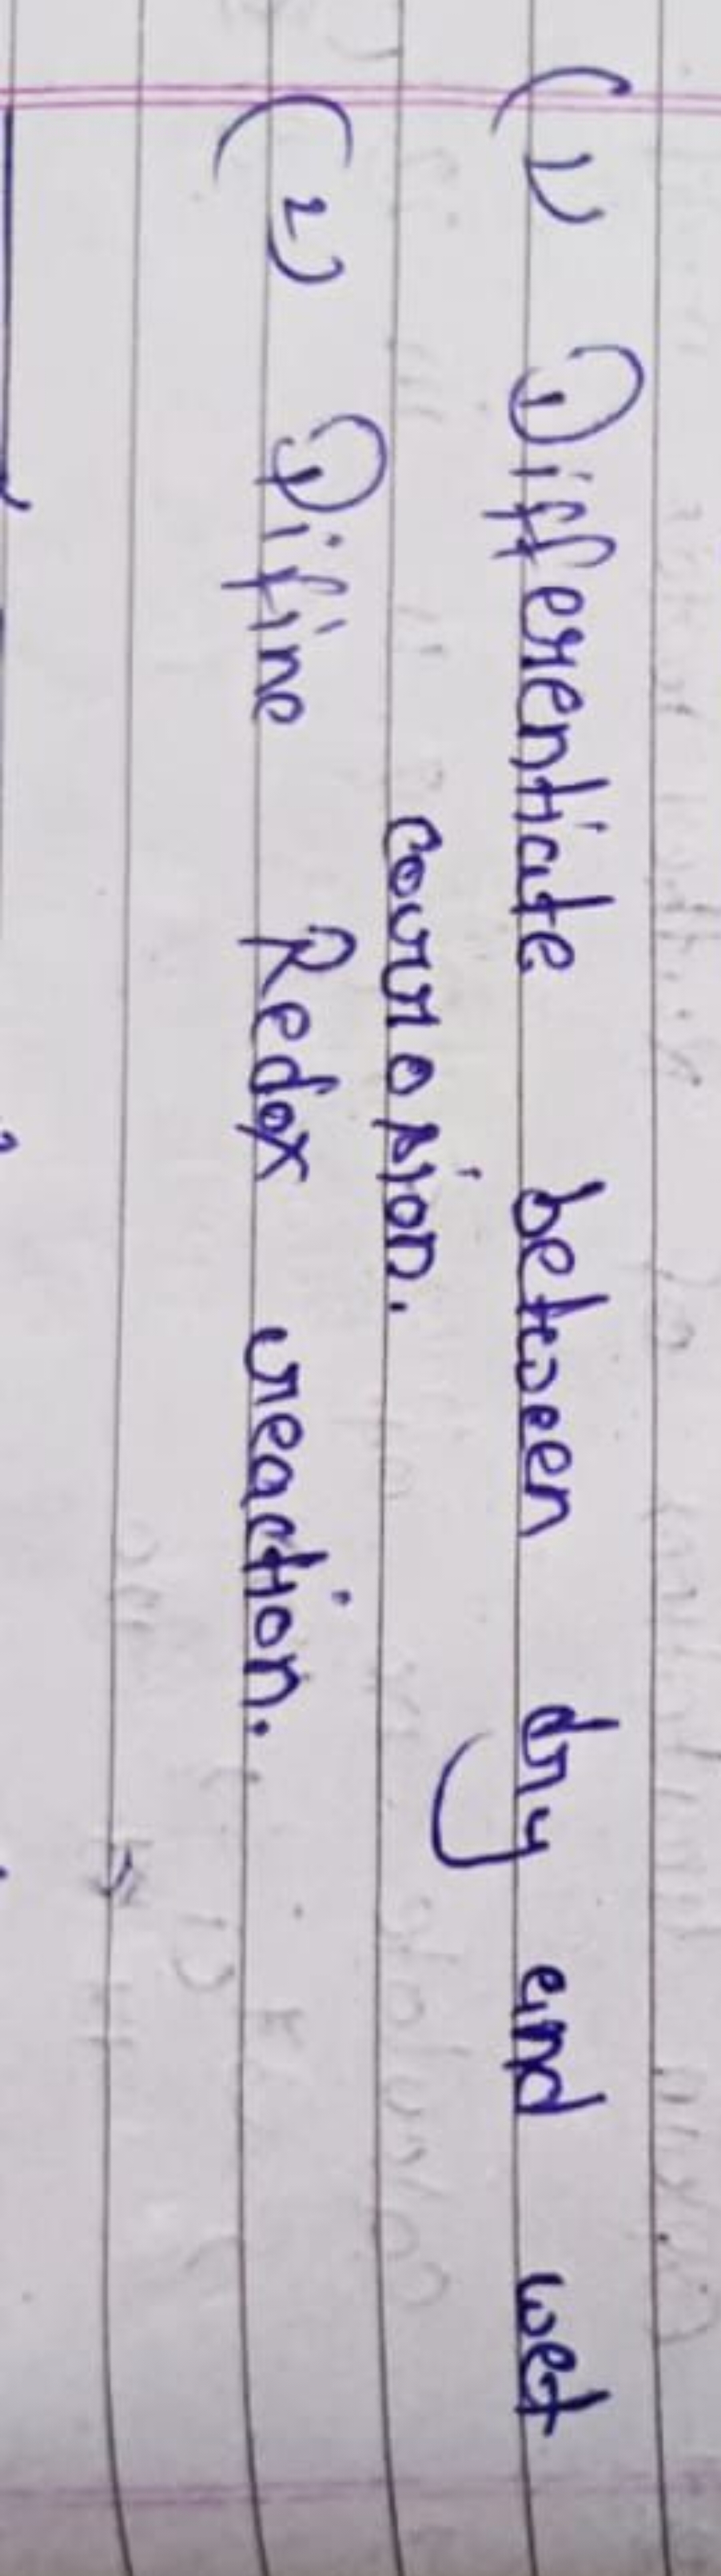 (1) Differentiate between dry and wet
corrosion.
(2) Difine Redox reaction.